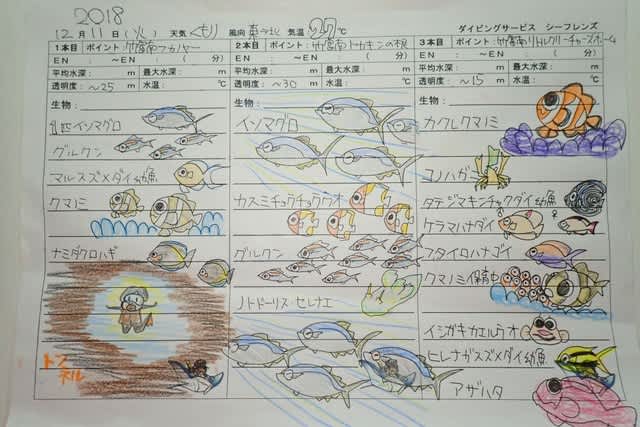 2018
12月11日(火) 天気 くもり 風向 東〜北 気温 27℃ ダイビングサービス シーフレンズ
1本目 ポイント:
EN: 〜EN: ( 分)
平均水深: m 最大水深: m
透明度: 〜25 m 水温: ℃
生物:
1匹イソマグロ
グルクン
マルスズメダイ幼魚
クマノミ
ナミダクロハギ
トンネル
2本目 ポイント: トカキンの根
EN: 〜EN: ( 分)
平均水深: m 最大水深: m
透明度: 〜30 m 水温: ℃
生物:
イソマグロ
カスミチョウチョウウオ
グルクン
ノトドーリス・セレナエ
3本目 ポイント:
EN: 〜EN: ( 分)
平均水深: m 最大水深: m
透明度: 〜15 m 水温: ℃
生物:
カクレクマノミ
コノハガニ
タテジマキンチャクダイ幼魚
ケラマハナダイ ♂ ♀
フタイロハナゴイ
クマノミ保育中
イシガキカエルウオ
ヒレナガスズメダイ幼魚
アザハタ